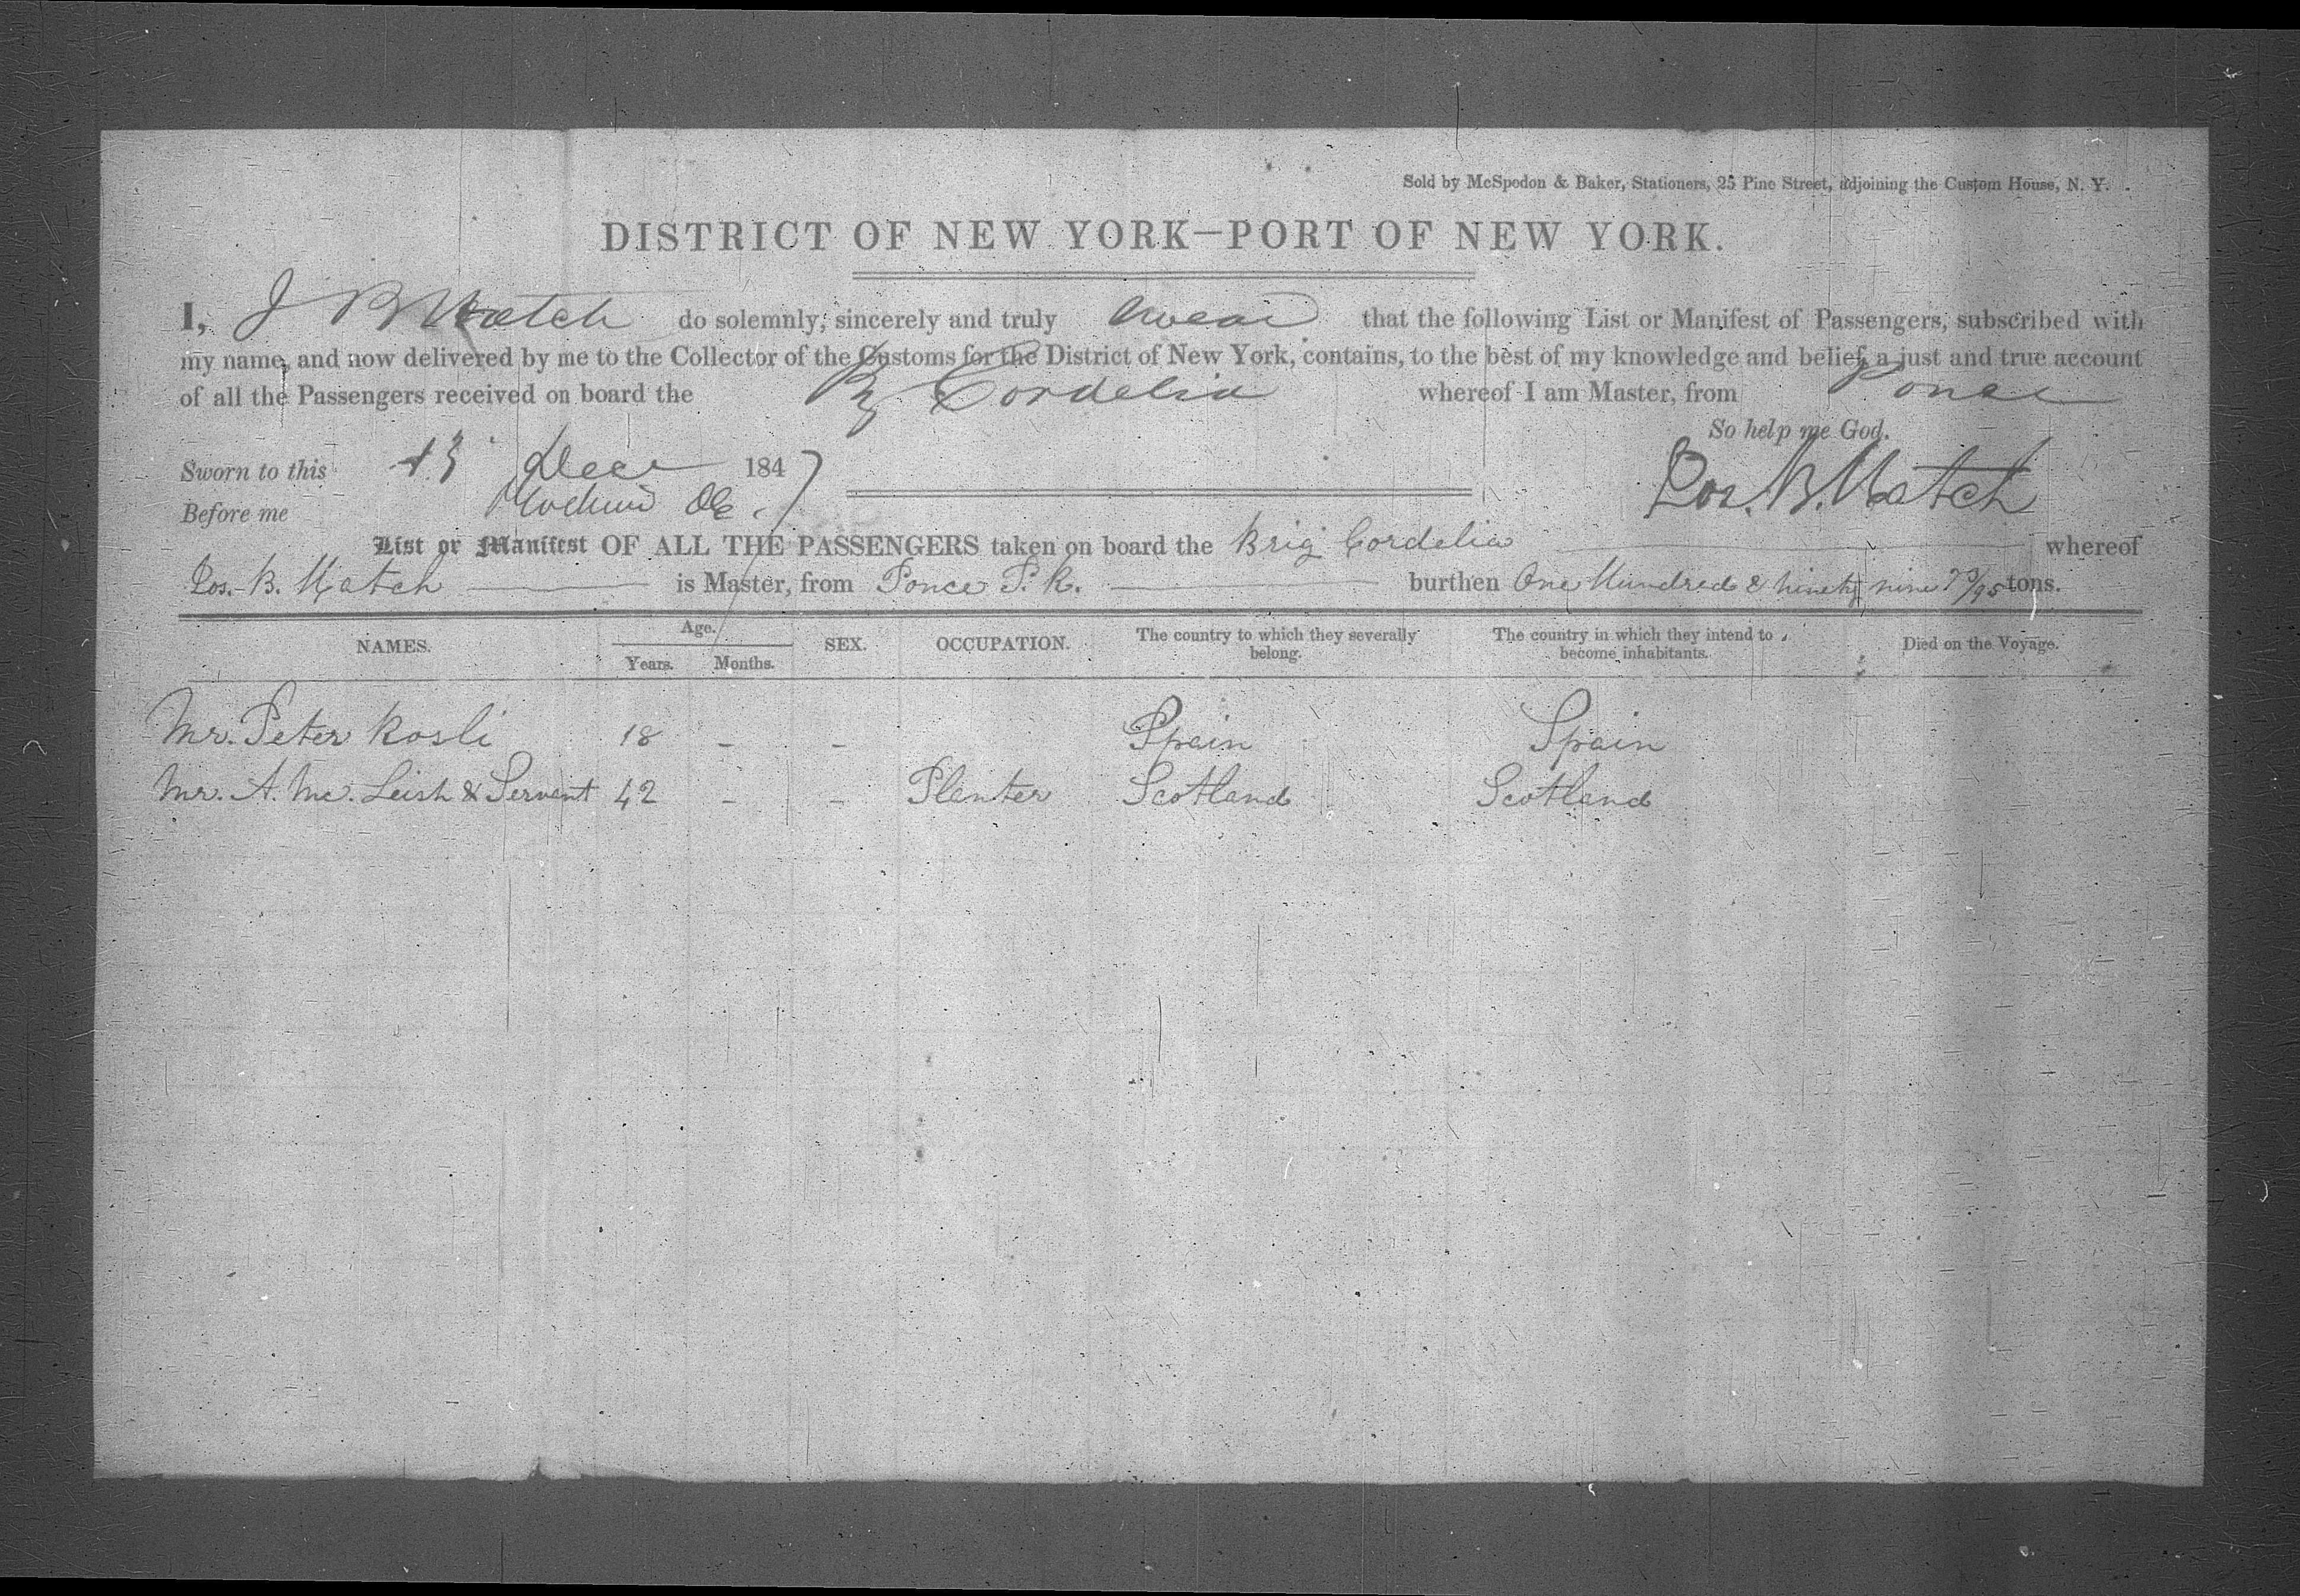 Sold by McSpedon & Baker, Stationers, 25 Pine Street, adjoining the Custom House, N. Y.
DISTRICT OF NEW YORK—PORT OF NEW YORK.
I, J B Hatch do solemnly, sincerely and truly swear that the following List or Manifest of Passengers, subscribed with
my name, and now delivered by me to the Collector of the Customs for the District of New York, contains, to the best of my knowledge and belief, a just and true account
of all the Passengers received on board the Cordelia whereof I am Master, from Ponce
So help me God.
Sworn to this 13 Dec 1847
Jos. B. Hatch
Before me
List or Manifest OF ALL THE PASSENGERS taken on board the Brig Cordelia whereof
Jos. B. Hatch is Master, from Ponce P. R. burthen One Hundred & ninety nine 73/95 tons.
NAMES. Age. Years. Months. SEX. OCCUPATION. The country to which they severally belong. The country in which they intend to become inhabitants. Died on the Voyage.
Mr. Peter Rosli 18 - - Spain Spain
Mr. A. Mc. Leish & Servant 42 - - Planter Scotland Scotland